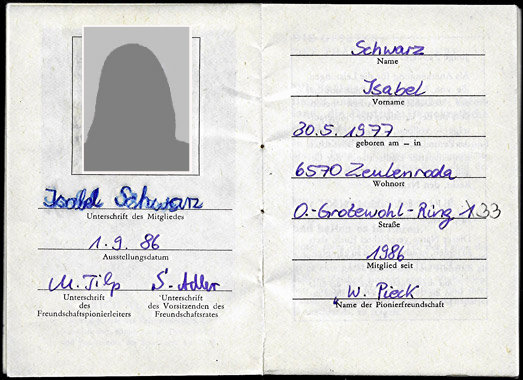 Isabel Schwarz
Unterschrift des Mitgliedes
1.9.86
Ausstellungsdatum
M. Tilp S. Adler
Unterschrift des Freundschaftspionierleiters
Unterschrift des Vorsitzenden des Freundschaftsrates
Schwarz
Name
Isabel
Vorname
30.5.1977
geboren am – in
6570 Zeulenroda
Wohnort
O.-Grotewohl-Ring 33
Straße
1986
Mitglied seit
"W. Pieck
Name der Pionierfreundschaft